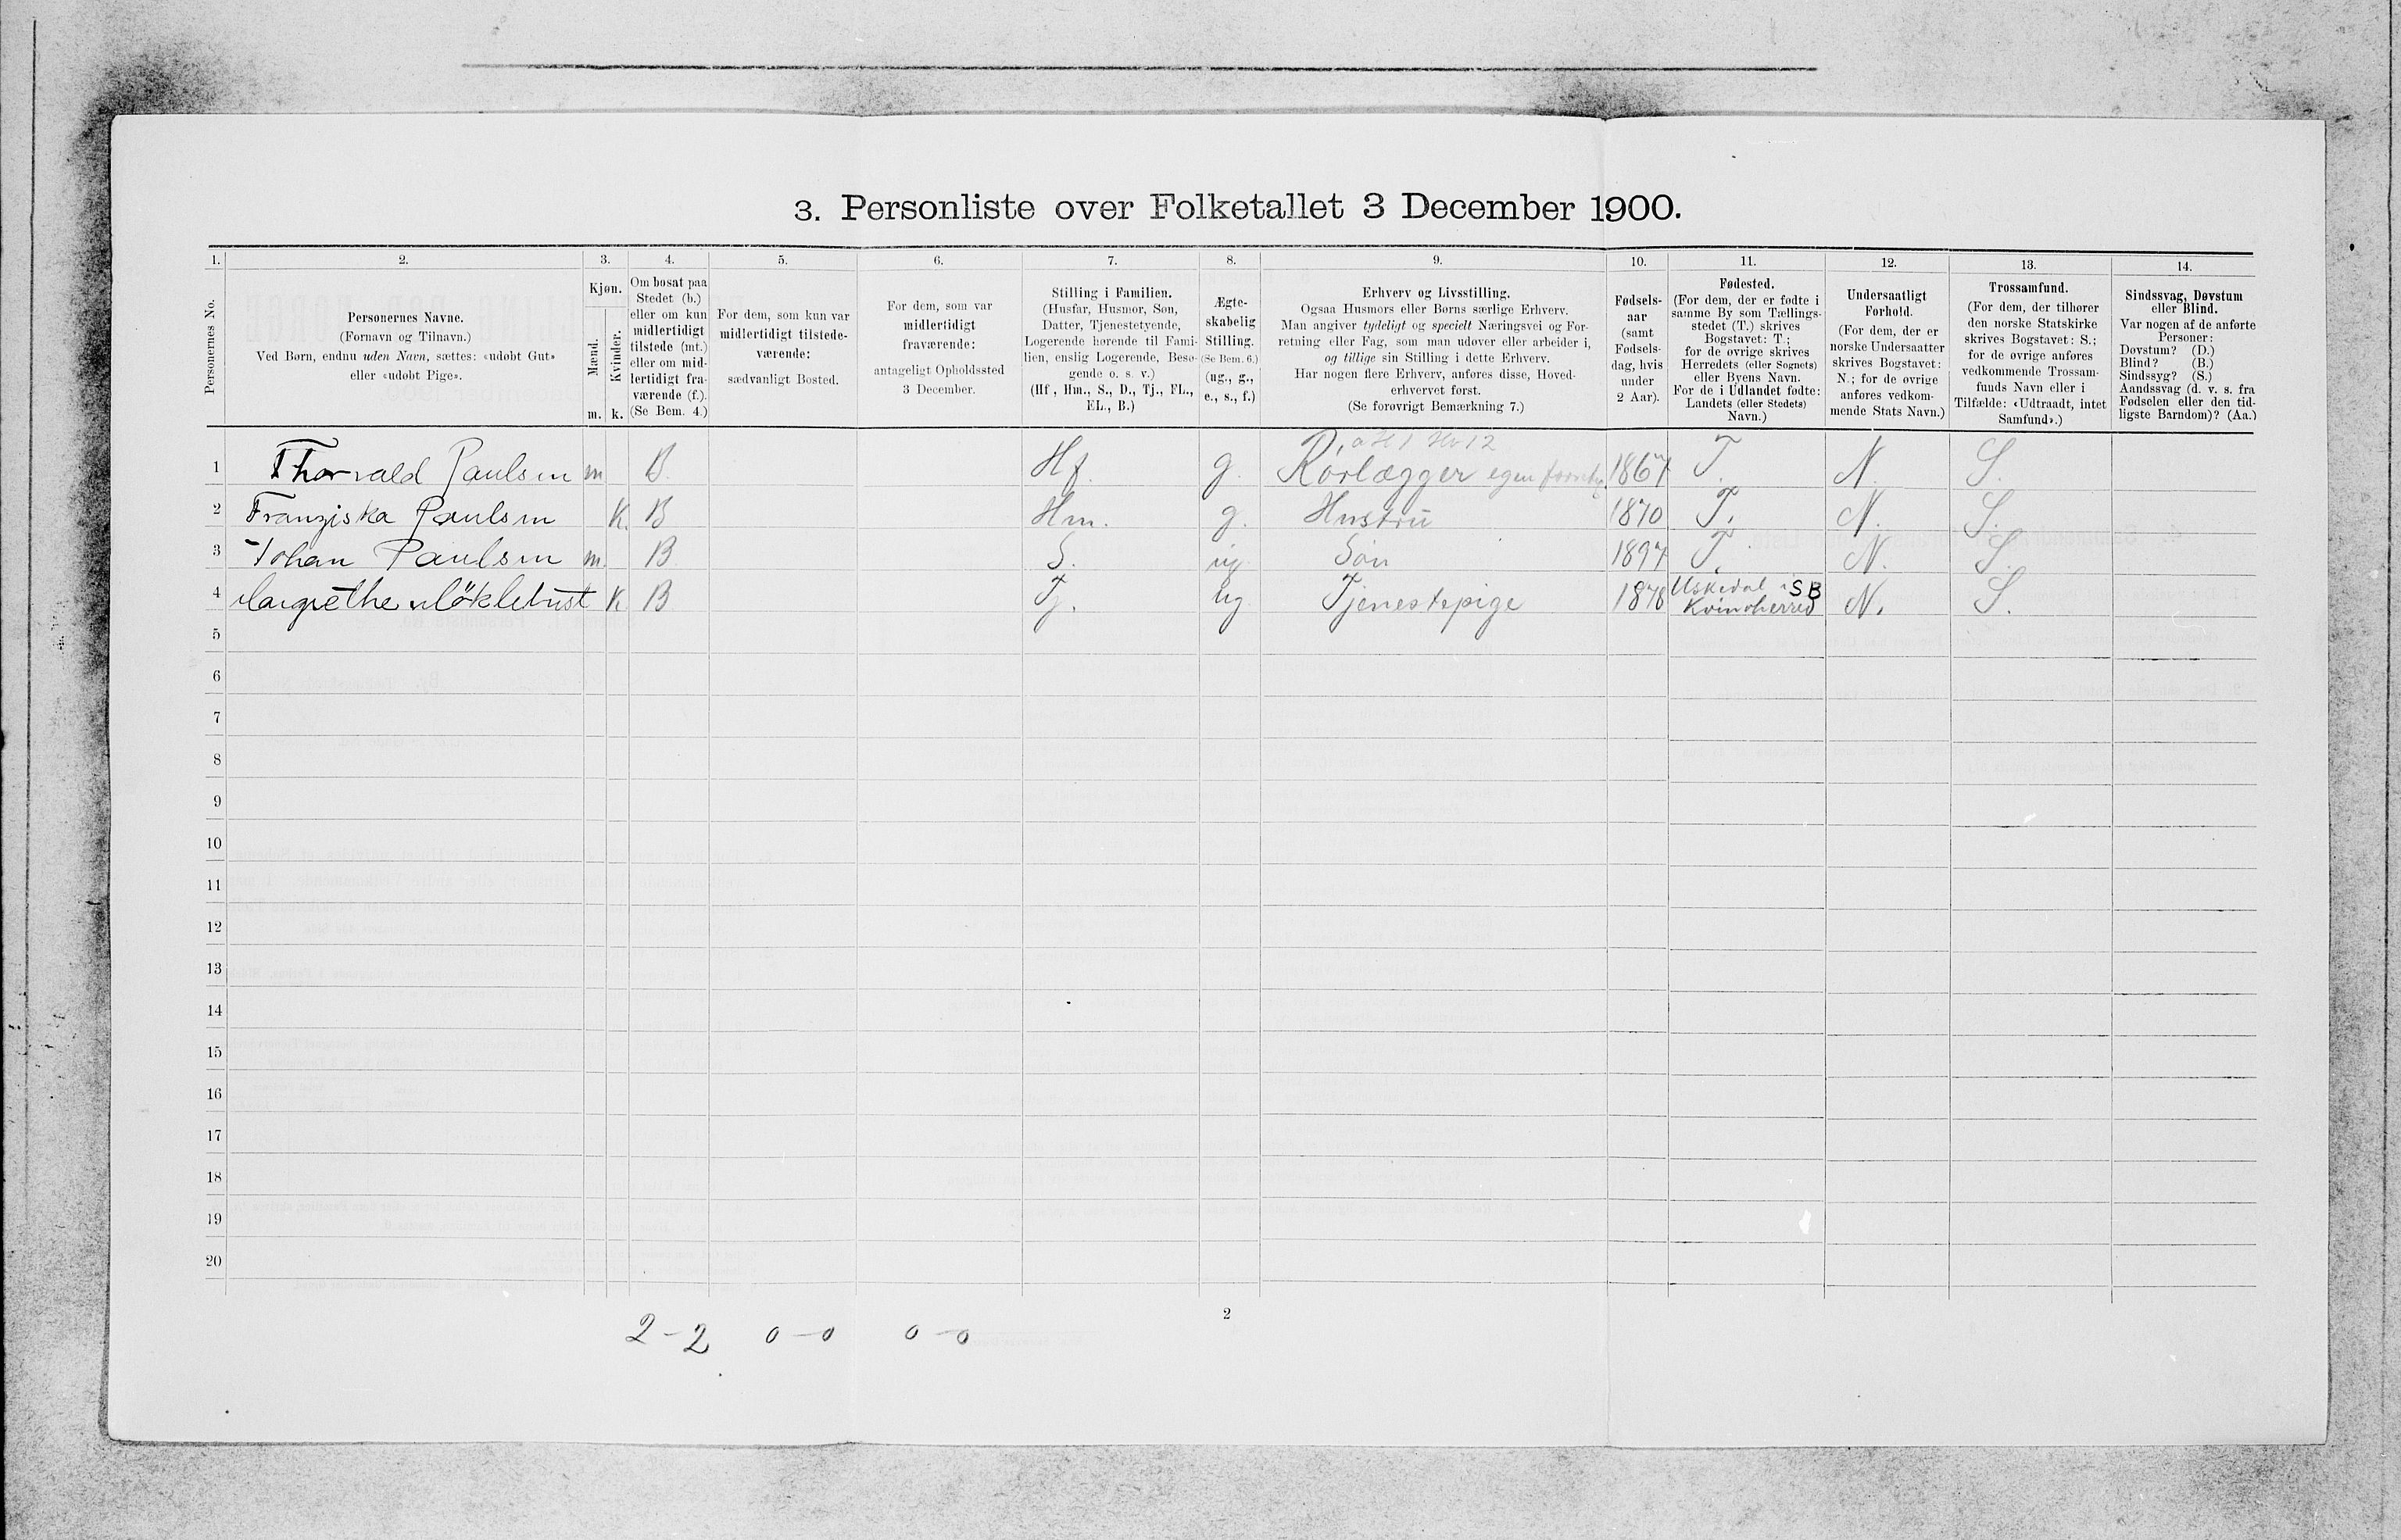 3. Personliste over Folketallet 3 December 1900.
1. 2. 3. 4. 5. 6. 7. 8. 9. 10. 11. 12. 13. 14.
Personernes No.
Personernes Navne.
(Fornavn og Tilnavn.)
Ved Børn, endnu uden Navn, sættes: «udøbt Gut»
eller «udøbt Pige».
Kjøn.
Mænd.
Kvinder.
m. k.
Om bosat paa
Stedet (b.)
eller om kun
midlertidigt
tilstede (mt.)
eller om mid-
lertidigt fra-
værende (f.).
(Se Bem. 4.)
For dem, som kun var
midlertidigt tilstede-
værende:
sædvanligt Bosted.
For dem, som var
midlertidigt
fraværende:
antageligt Opholdssted
3 December.
Stilling i Familien.
(Husfar, Husmor, Søn,
Datter, Tjenestetyende,
Logerende hørende til Fami-
lien, enslig Logerende, Besø-
gende o. s. v.)
(Hf., Hm., S., D., Tj., FL.,
EL., B.)
Ægte-
skabelig
Stilling.
(Se Bem. 6.)
(ug., g.,
e., s., f.)
Erhverv og Livsstilling.
Ogsaa Husmors eller Børns særlige Erhverv.
Man angiver tydeligt og specielt Næringsvei og For-
retning eller Fag, som man udøver eller arbeider i,
og tillige sin Stilling i dette Erhverv.
Har nogen flere Erhverv, anføres disse, Hoved-
erhvervet først.
(Se forøvrigt Bemærkning 7.)
Fødsels-
aar
(samt
Fødsels-
dag, hvis
under
2 Aar).
Fødested.
(For dem, der er fødte i
samme By som Tællings-
stedet (T.) skrives
Bogstavet: T.;
for de øvrige skrives
Herredets (eller Sognets)
eller Byens Navn.
For de i Udlandet fødte:
Landets (eller Stedets)
Navn.)
Undersaatligt
Forhold.
(For dem, der er
norske Undersaatter
skrives Bogstavet:
N.; for de øvrige
anføres vedkom-
mende Stats Navn.)
Trossamfund.
(For dem, der tilhører
den norske Statskirke
skrives Bogstavet: S.;
for de øvrige anføres
vedkommende Trossam-
funds Navn eller i
Tilfælde: «Udtraadt, intet
Samfund».)
Sindssvag, Døvstum
eller Blind.
Var nogen af de anførte
Personer:
Døvstum? (D.)
Blind? (B.)
Sindssyg? (S.)
Aandssvag (d. v. s. fra
Fødselen eller den tid-
ligste Barndom)? (Aa.)
1 Thorvald Paulsen m B. Hf. g. Rørlægger egen 1867 T. N. S.
2 Franziska Paulsen K. B Hm. g. Hustru 1870 T. N. S.
3 Johan Paulsen m. B S. ug Søn 1897 T. N. S.
4 Margrethe Mökletust K B Tj. ug Tjenestepige 1878 Uskedal i SB
Kvindherred N. S.
5
6
7
8
9
10
11
12
13
14
15
16
17
18
19
20
2
2-2 0-0 0-0